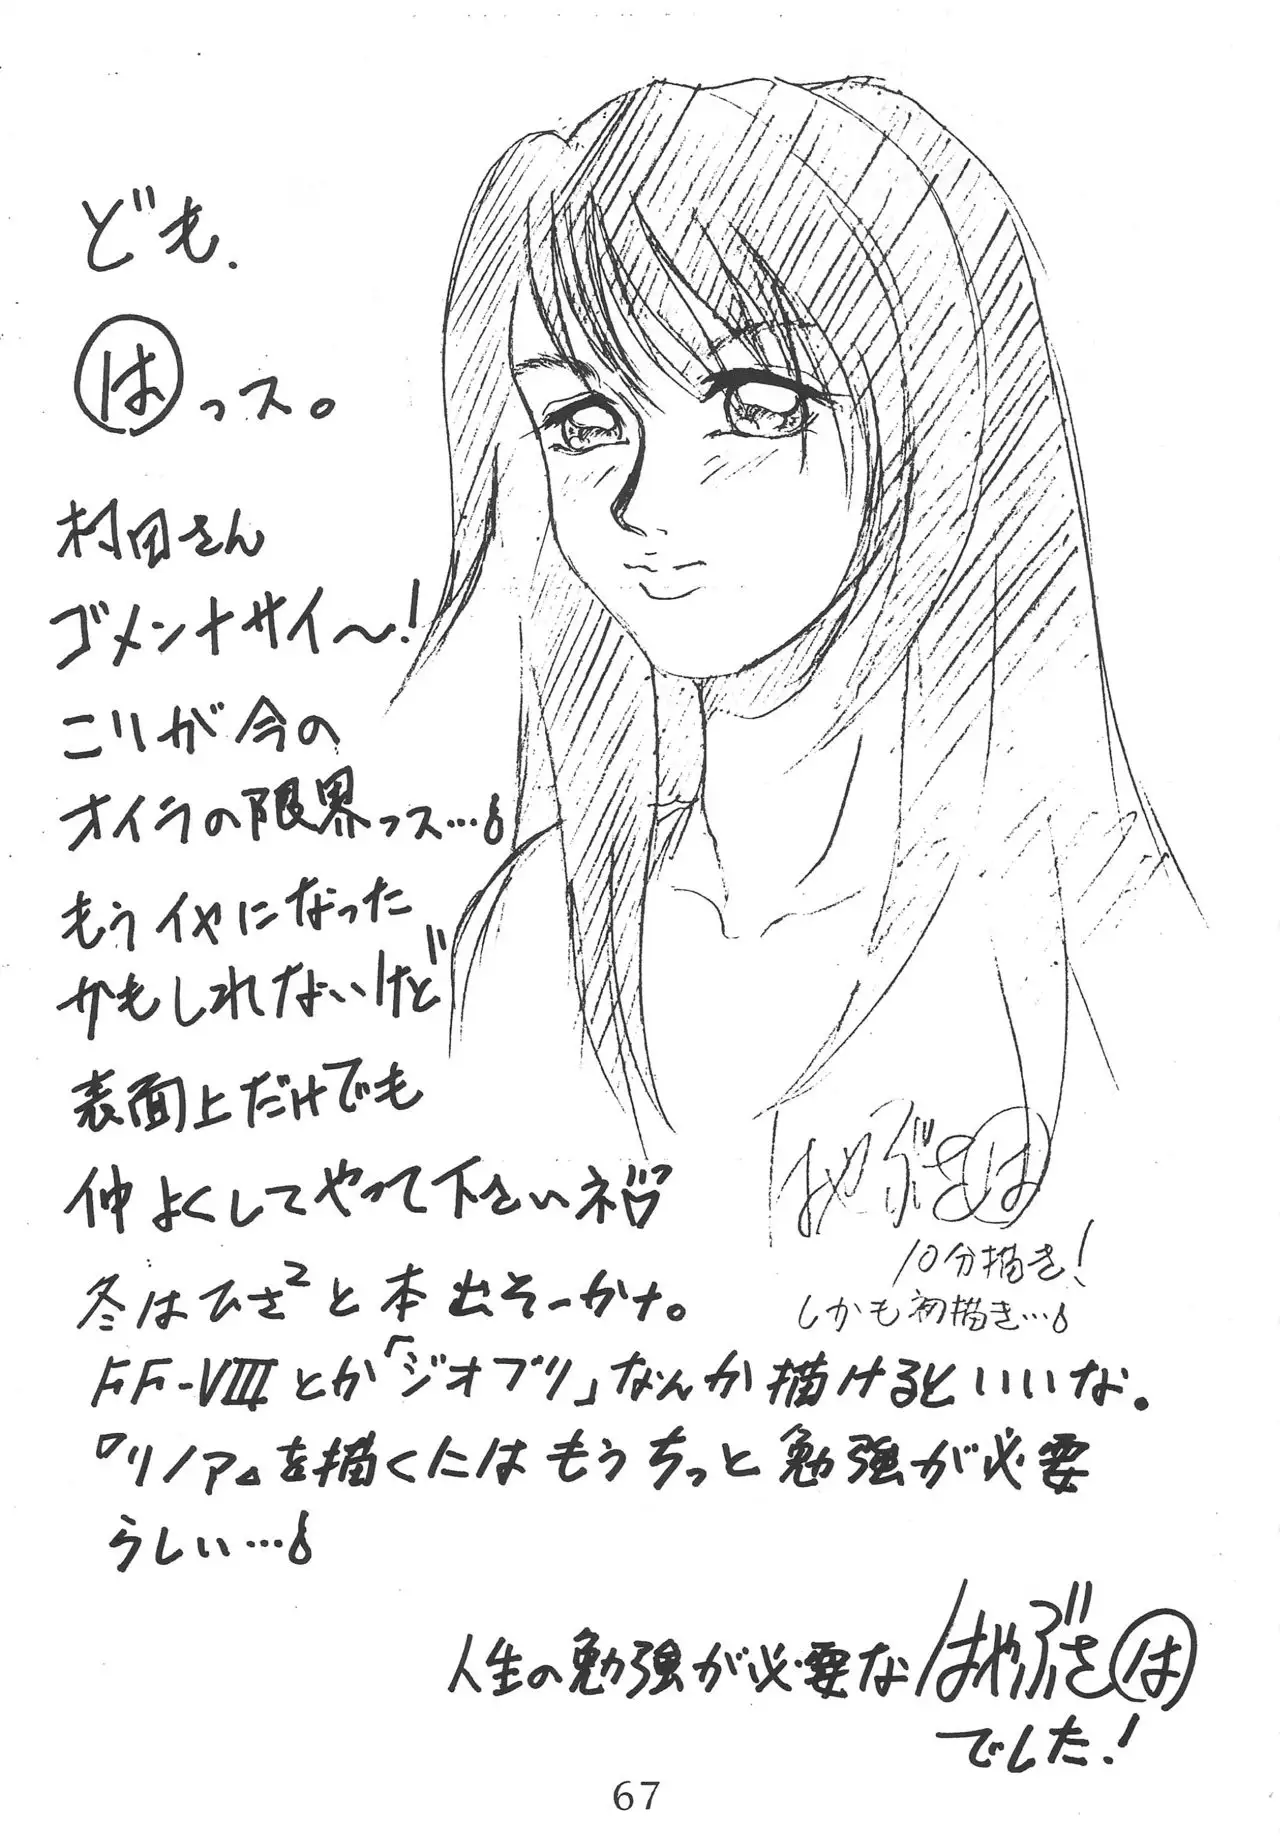 ども.
はっス。
村田さん
ゴメンナサイ～!
こりが今の
オイラの限界っス…
もうイヤになった
かもしれないけど
表面上だけでも
仲よくしてやって下さいネ
冬はひさ²と本出そーかナ。
FF-VIIIとか「ジオブリ」なんか描けるといいな。
『リノア』を描くにはもうちっと勉強が必要
らしい…
はやぶさは
10分描き!
しかも初描き…
人生の勉強が必要なはやぶさは
でした!
67